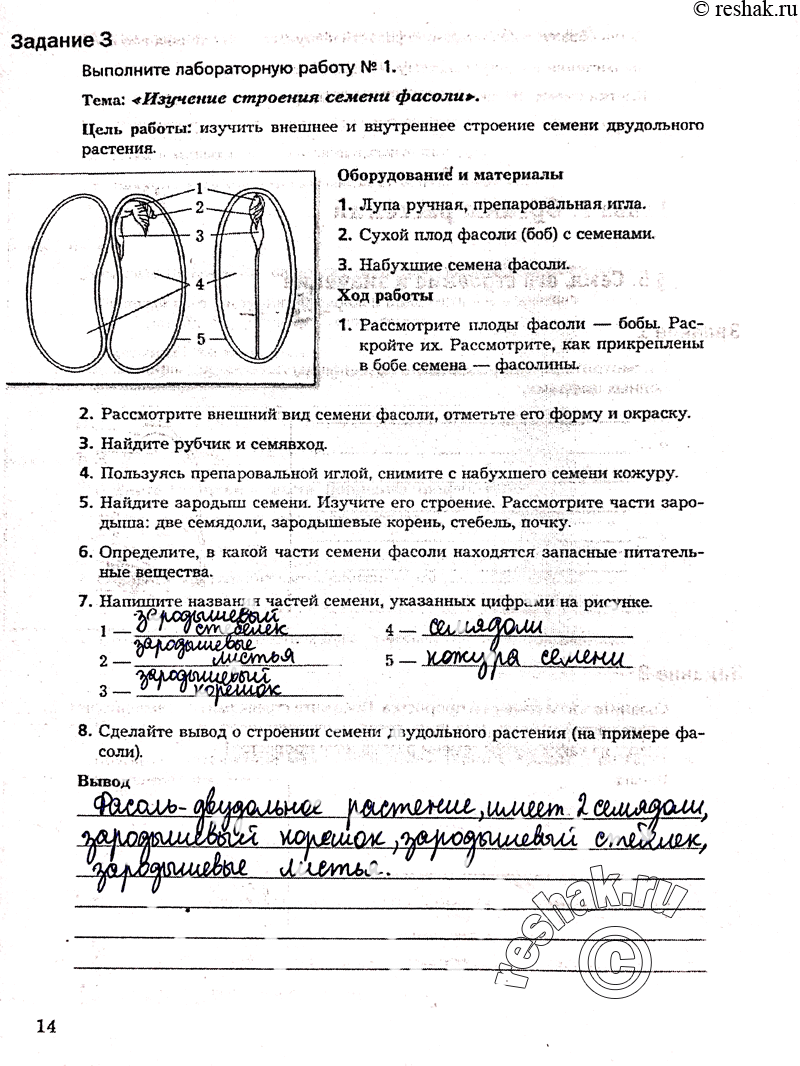 © reshak.ru
Задание 3
Выполните лабораторную работу № 1.
Тема: «Изучение строения семени фасоли».
Цель работы: изучить внешнее и внутреннее строение семени двудольного
растения.
1
2
3
4
5
Оборудование и материалы
1. Лупа ручная, препаровальная игла.
2. Сухой плод фасоли (боб) с семенами.
3. Набухшие семена фасоли.
Ход работы
1. Рассмотрите плоды фасоли — бобы. Рас-
кройте их. Рассмотрите, как прикреплены
в бобе семена — фасолины.
2. Рассмотрите внешний вид семени фасоли, отметьте его форму и окраску.
3. Найдите рубчик и семявход.
4. Пользуясь препаровальной иглой, снимите с набухшего семени кожуру.
5. Найдите зародыш семени. Изучите его строение. Рассмотрите части заро-
дыша: две семядоли, зародышевые корень, стебель, почку.
6. Определите, в какой части семени фасоли находятся запасные питатель-
ные вещества.
7. Напишите названия частей семени, указанных цифрами на рисунке.
зародышевый
1 — стебелек
зародышевые
2 — листья
зародышевый
3 — корешок
4 — семядоли
5 — кожура семени
8. Сделайте вывод о строении семени двудольного растения (на примере фа-
соли).
Вывод
Фасоль-двудольное растение, имеет 2 семядоли,
зародышевый корешок, зародышевый стебелек,
зародышевые листья.
reshak.ru
©
14